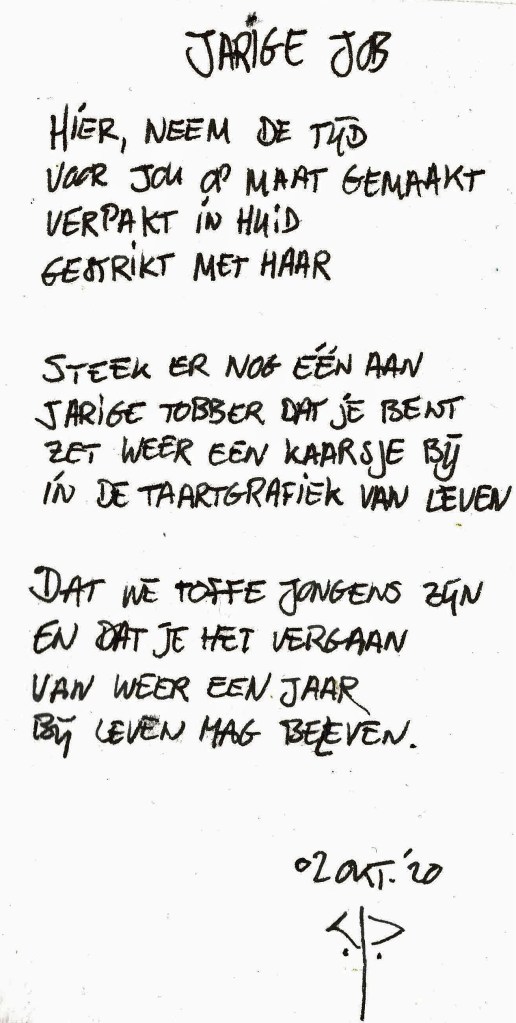 JARIGE JOB
HIER, NEEM DE TIJD
VOOR JOU OP MAAT GEMAAKT
VERPAKT IN HUID
GESTRIKT MET HAAR
STEEK ER NOG ÉÉN AAN
JARIGE TOBBER DAT JE BENT
ZET WEER EEN KAARSJE BIJ
IN DE TAARTGRAFIEK VAN LEVEN
DAT WE TOFFE JONGENS ZIJN
EN DAT JE HET VERGAAN
VAN WEER EEN JAAR
BIJ LEVEN MAG BELEVEN.
02 OKT. '20